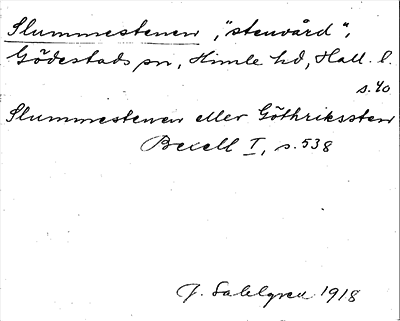 Slummestenen, "stenvård",
Gödestads sn, Himle hd, Hall. l.
s. 40
Slummestenen eller Göthrikssten
Bexell I, s. 538
J. Sahlgren 1918